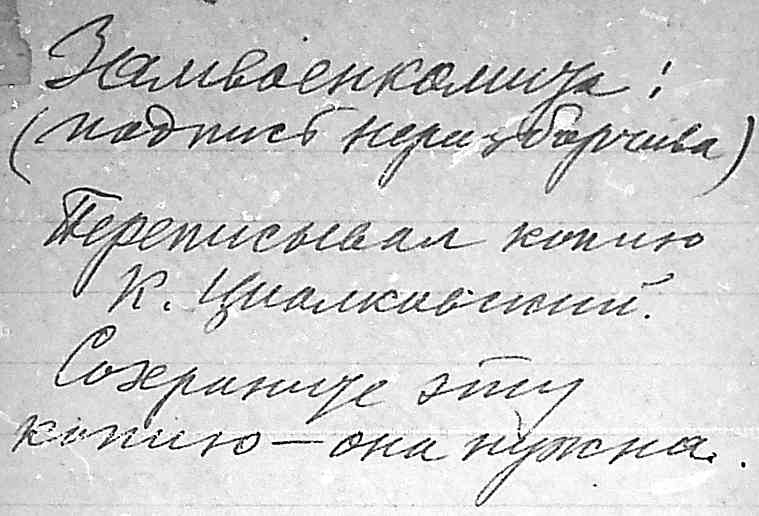 Замвоенкомпа:
(подпись неразборчива)
Переписывал копию
К. Циолковский.
Сохраните эту
копию — она нужна.